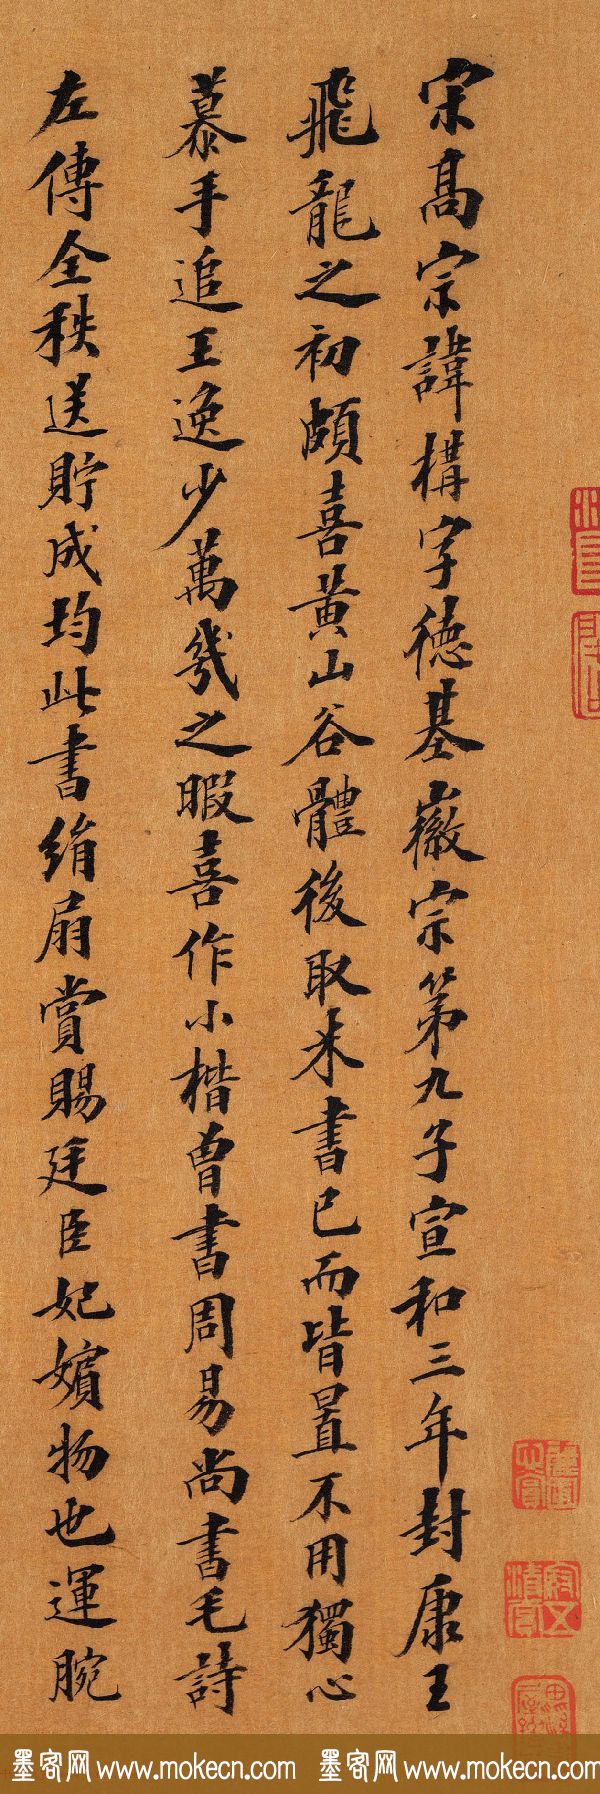 宋高宗諱構字德基徽宗第九子宣和三年封康王
飛龍之初頗喜黃山谷體後取米書已而皆置不用獨心
慕手追王逸少萬幾之暇喜作小楷曾書周易尚書毛詩
左傳全秩送貯成均此書絹扇賞賜廷臣妃嬪物也運腕
墨客网 www.mokecn.com 墨客网 www.mokecn.com